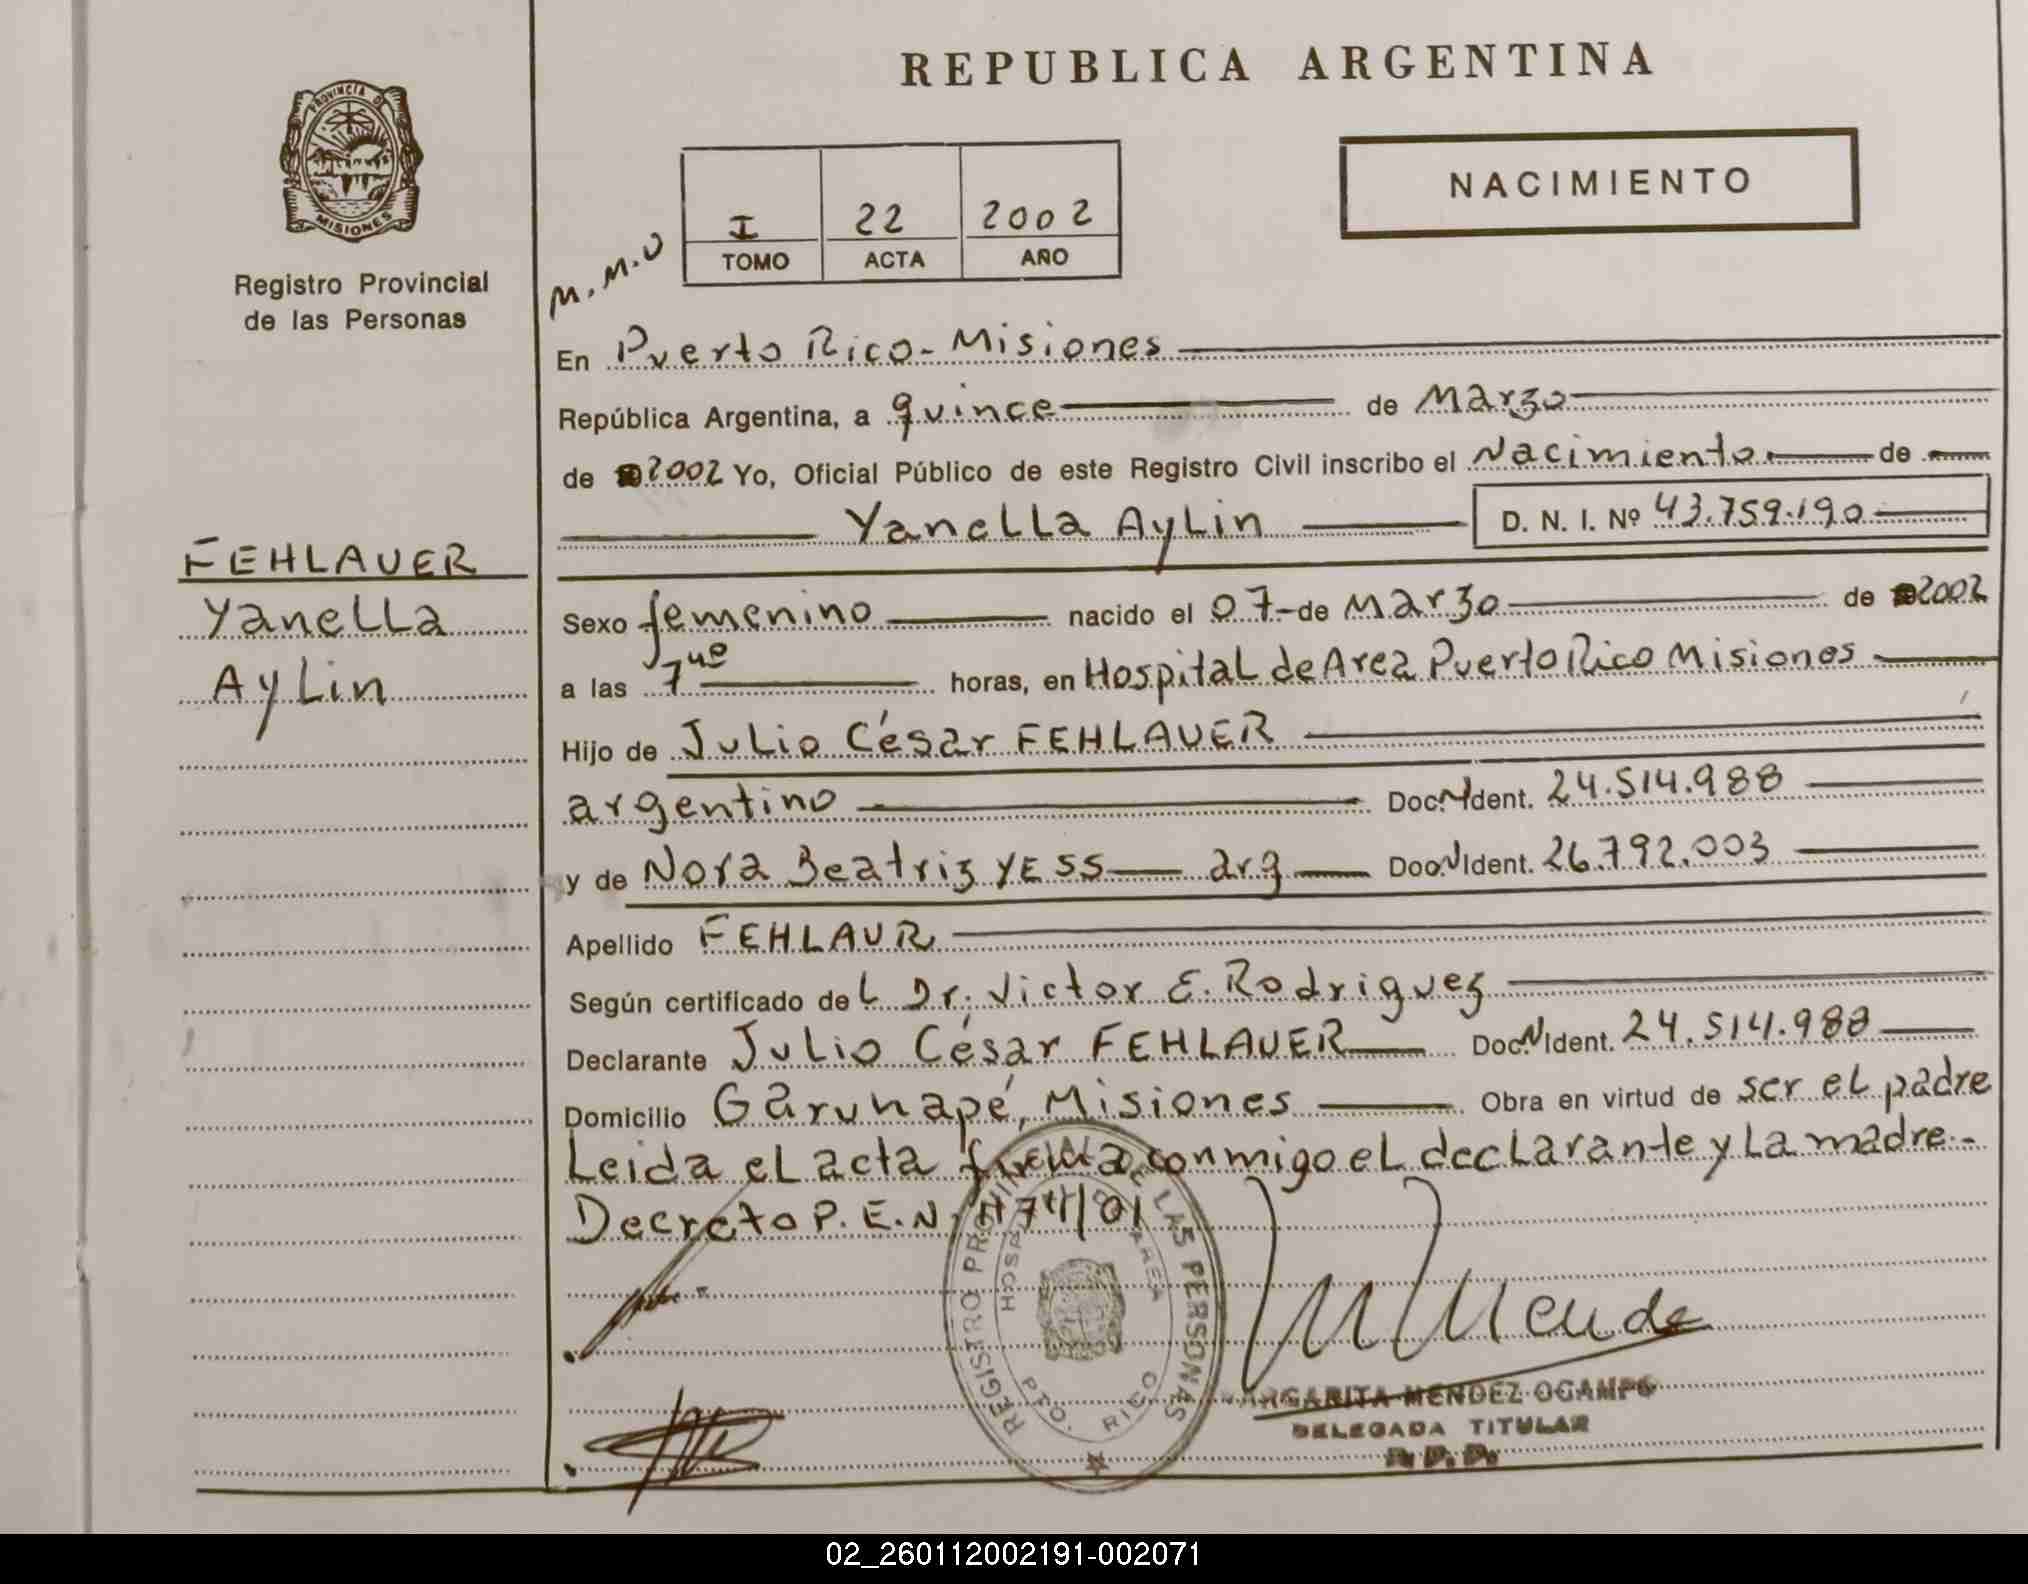 REPUBLICA ARGENTINA
PROVINCIA DE
MISIONES
Registro Provincial
de las Personas
NACIMIENTO
I 22 2002
TOMO ACTA AÑO
M.M.O
En Puerto Rico - Misiones
República Argentina, a quince de Marzo
de 2002 Yo, Oficial Público de este Registro Civil inscribo el Nacimiento de
Yanella Aylin D. N. I. Nº 43.759.190
FEHLAUER
Yanella
Aylin
Sexo femenino nacido el 07 de Marzo de 2002
a las 7 40 horas, en Hospital de Area Puerto Rico Misiones
Hijo de Julio César FEHLAUER
argentino Doc. N Ident. 24.514.988
y de Nora Beatriz YESS arg Doc. N Ident. 26.792.003
Apellido FEHLAUR
Según certificado del Dr. Victor E. Rodriguez
Declarante Julio César FEHLAUER Doc. N Ident. 24.514.988
Domicilio Garuhapé, Misiones Obra en virtud de ser el padre
Leida el acta firma conmigo el declarante y la madre.-
Decreto P.E.N.
REGISTRO PROVINCIAL DE LAS PERSONAS
HOSPITAL AREA
PTO. RICO
MMende
MARGARITA MENDEZ OCAMPO
DELEGADA TITULAR
02_260112002191-002071